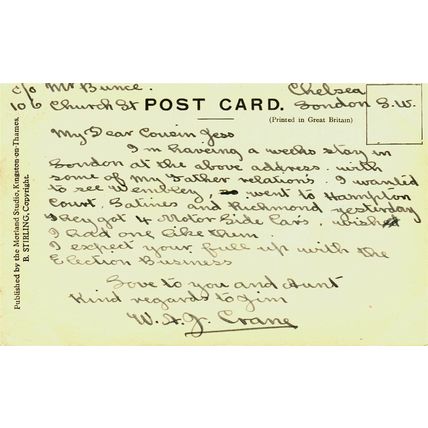 c/o Mr Bunce. Chelsea
106 Church St POST CARD. London S.W.
(Printed in Great Britain)
My Dear Cousin Jess
I m haveing a weeks stay in
London at the above address. with
some of my Father relation's. I wanted
to see Wembley, went to Hampton
Court, Satines and Richmond yesterday
They got 4 Motor Side Cars. wished
I had one like them.
I expect your full up with the
Election Business
Love to you and Aunt
Kind regards to Jim
W. A. J. Crane
Published by the Merland Studio, Kingston-on-Thames.
B. STIRLING, Copyright.